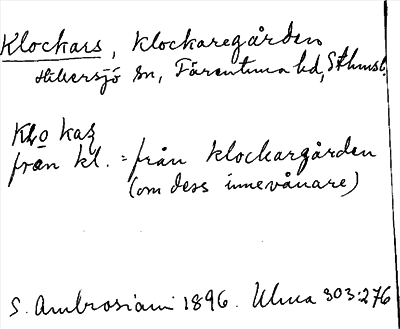 Klockars, klockaregården
Hilersjö sn, Färentuna hd, Sthmsl.
Klo kaʂ
från kl. = från klockargården
(om dess innevånare)
S. Ambrosiani 1896. Ulma 303:276